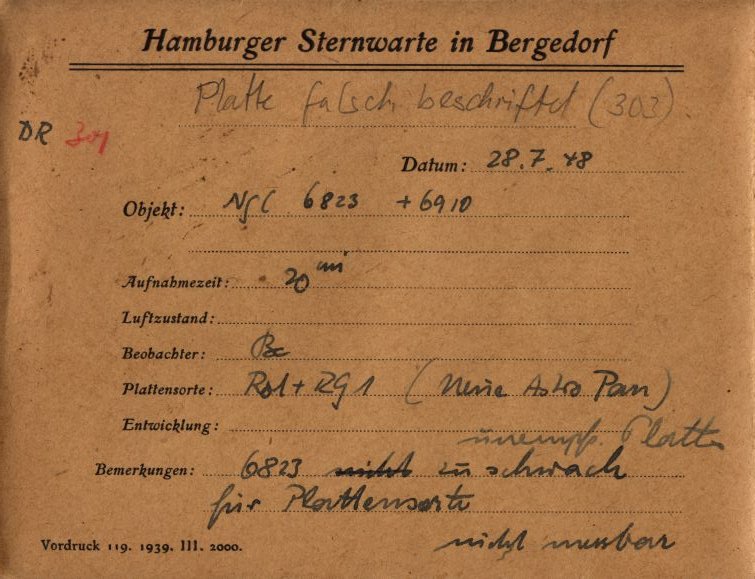 Hamburger Sternwarte in Bergedorf
Platte falsch beschriftet (303)
DR 301
Datum: 28.7.48
Objekt: NGC 6823 + 6910
Aufnahmezeit: 20 mi
Luftzustand:
Beobachter:
Plattensorte: Rot + RG1 (Neue Astro Pan)
Entwicklung:
unempf. Platte
Bemerkungen: 6823 nicht zu schwach
für Plattensorte
Vordruck 119. 1939. III. 2000.
nicht messbar